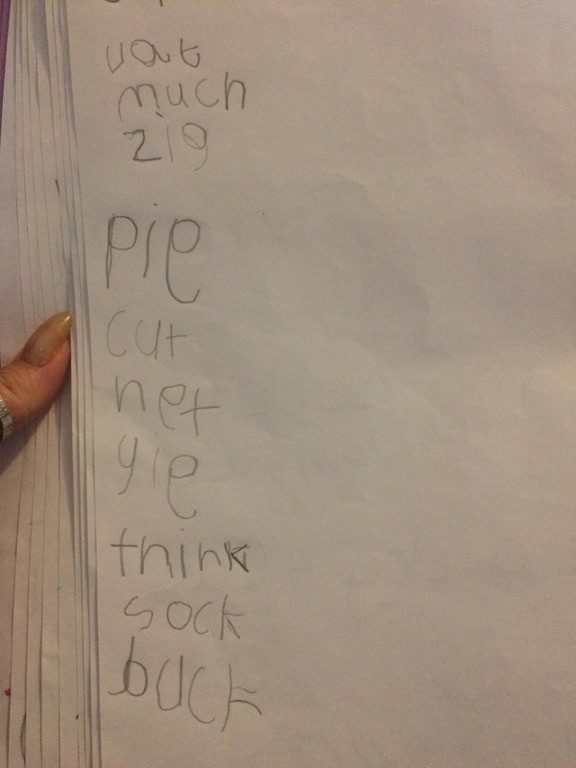 vat
much
zig
pie
cut
net
yie
think
sock
buck